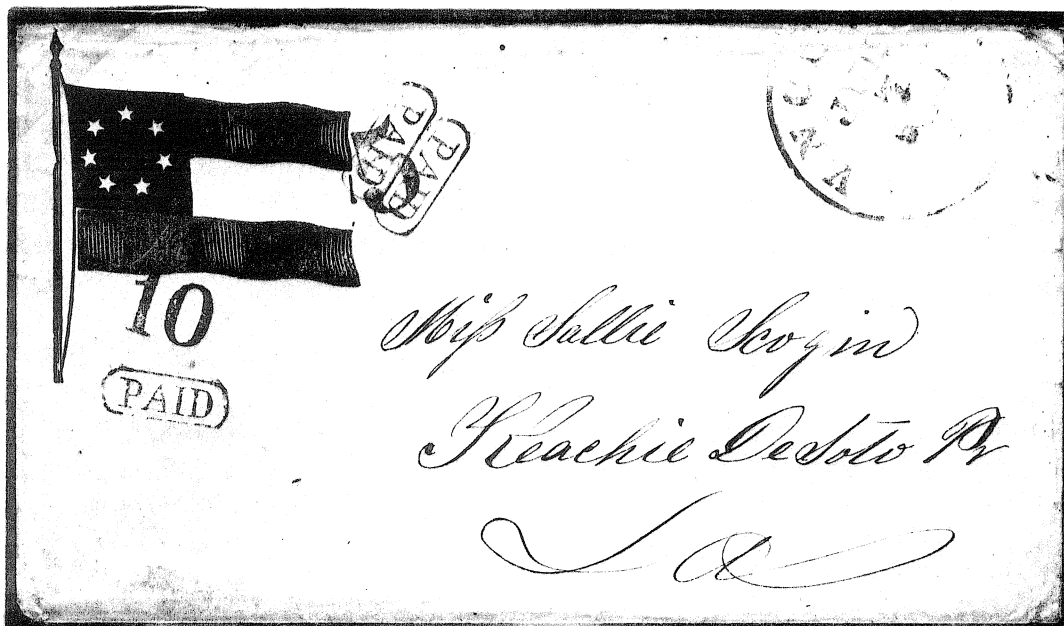 PAID
PAID
10
PAID
Miss Sallie Scogin
Keachie DeSoto Pr
La